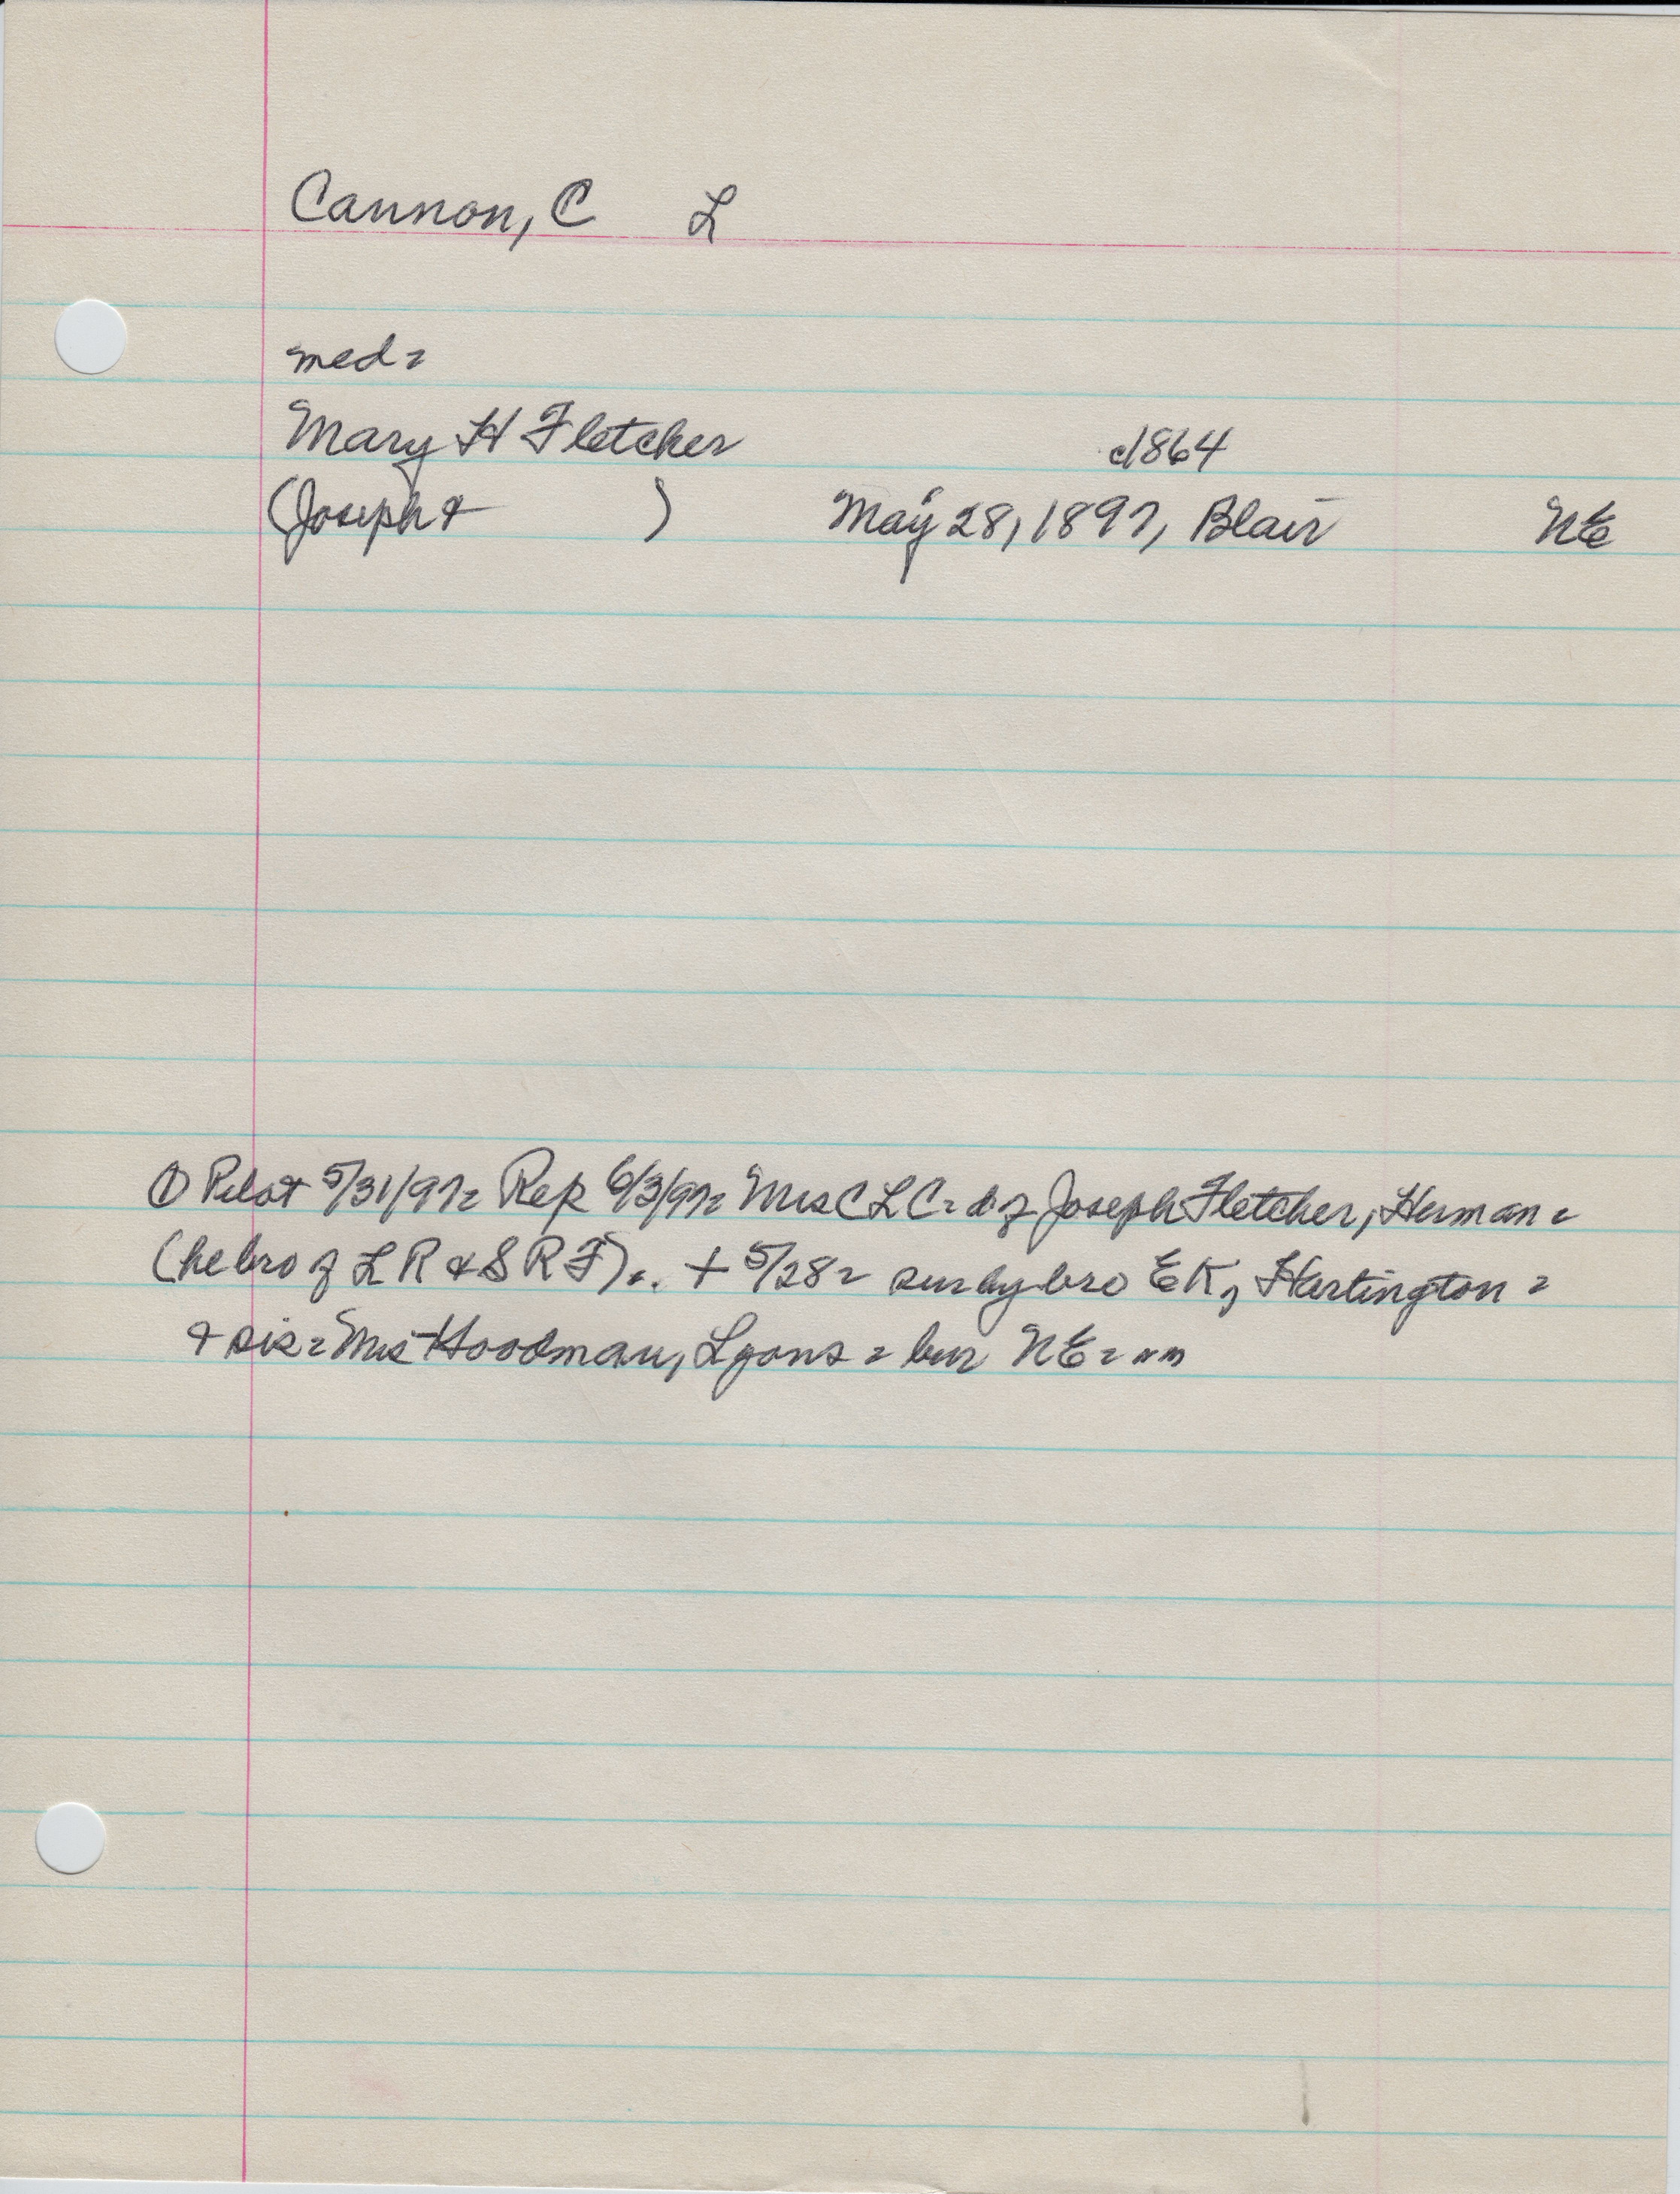 Cannon, C L
med =
Mary H Fletcher c1864
(Joseph & ) May 28, 1897, Blair NE
① Pilot 5/31/97= Rep 6/3/97= Mrs C L C= d of Joseph Fletcher, Herman =
(he bro of L R & S R F)... + 5/28= sur by bro E K, Hartington =
& sis = Mrs Hoodman, Lyons = bur NE = nn